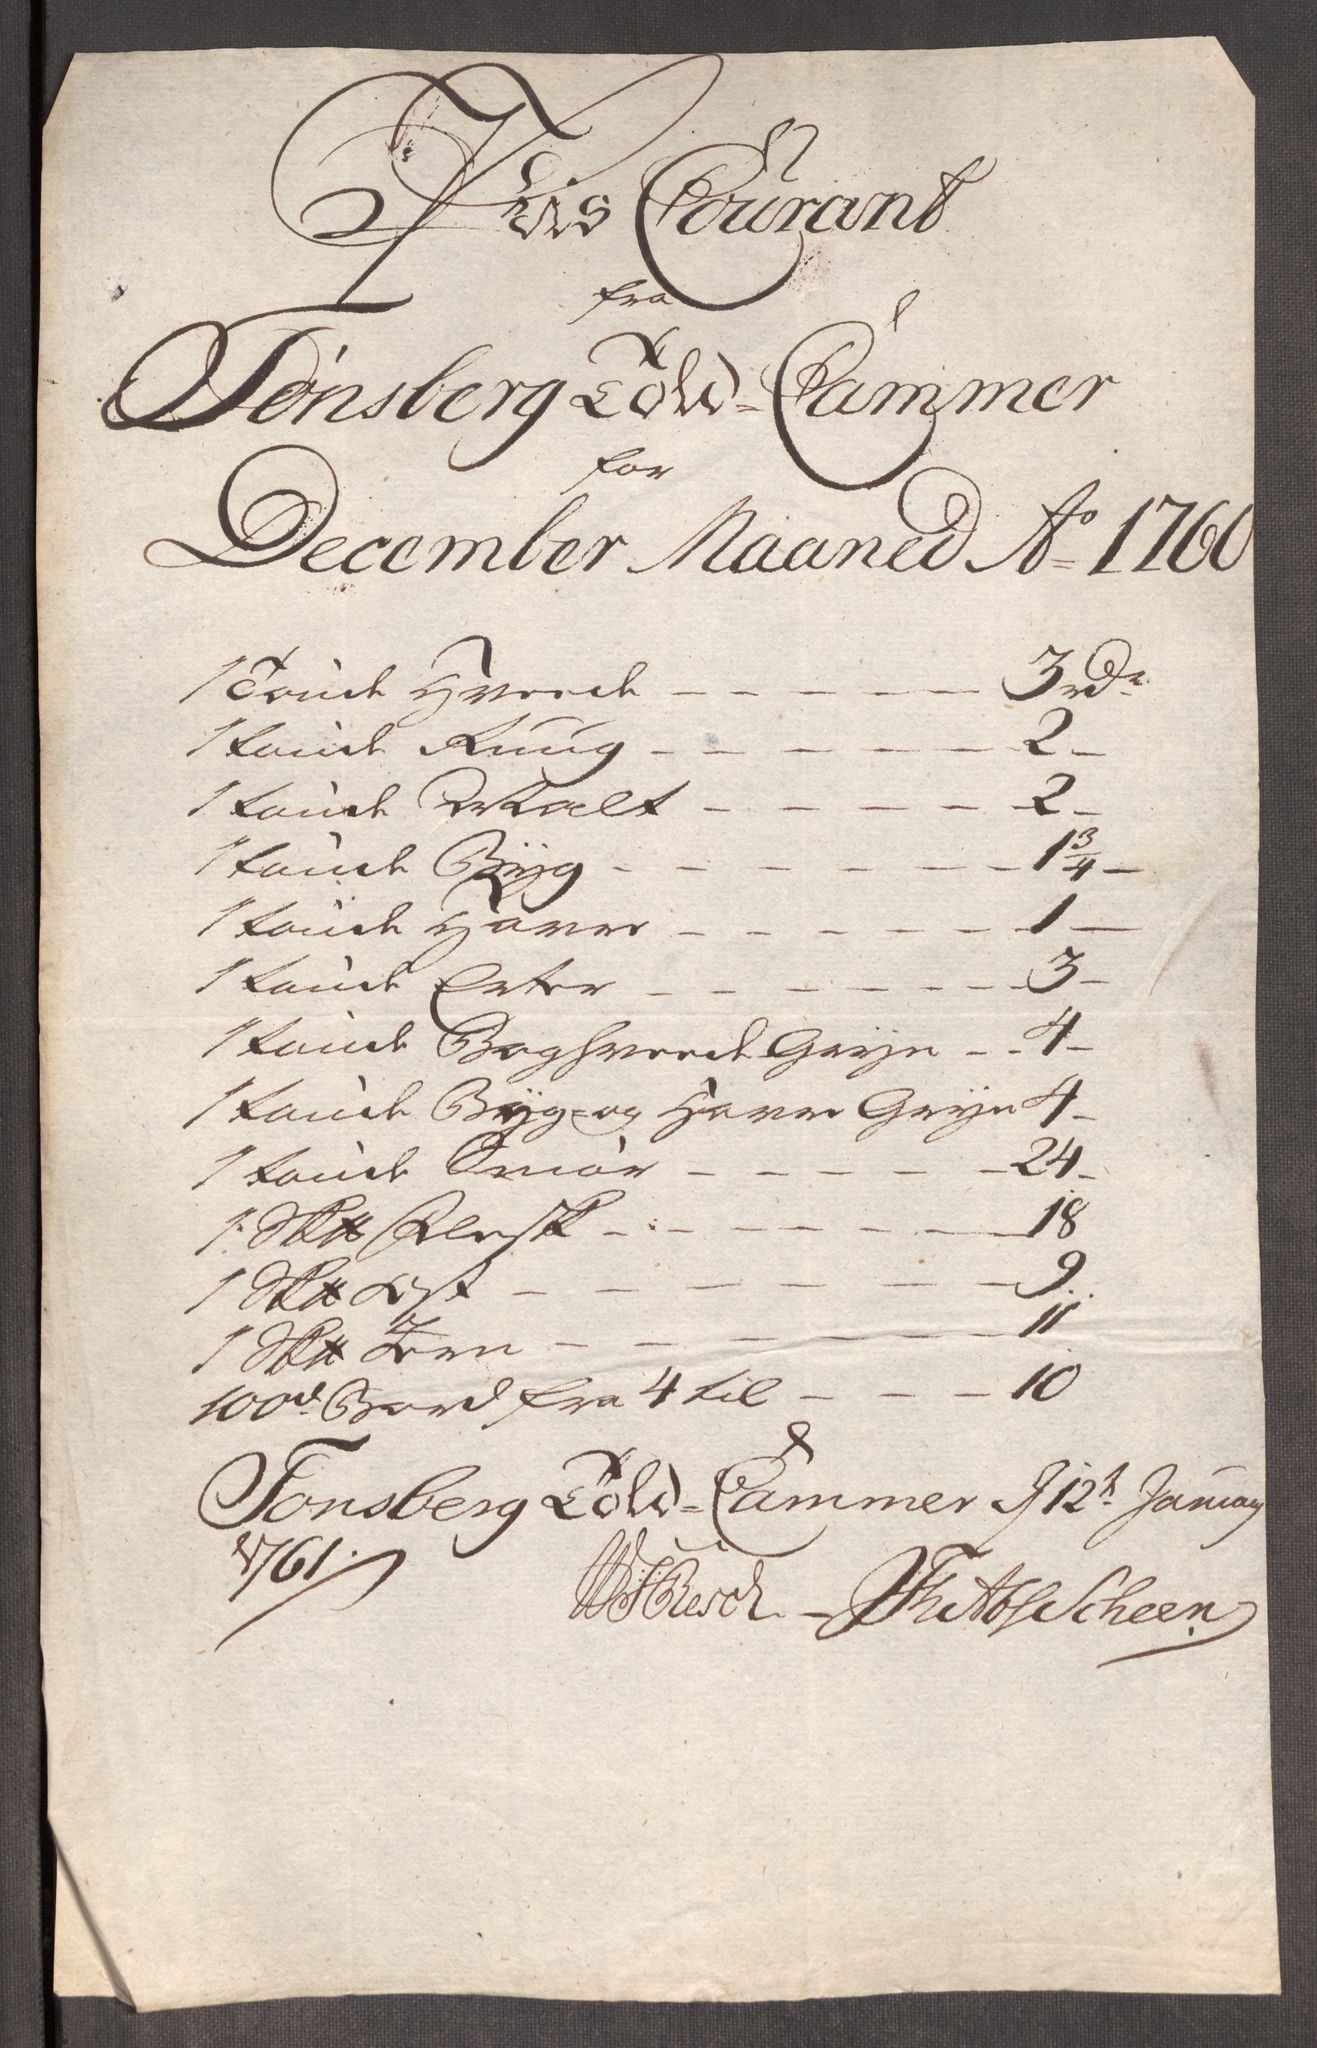 Priis Courant
fra
Tønsberg Told-Cammer
for
December Maaned Ao 1760
1 Tønde Hvede - - - - - - 3 rdr
1 tønde Ruug - - - - - - 2 -
1 tønde Malt - - - - - 2 -
1 tønde Byg - - - - - - 1 3/4 -
1 tønde Havre - - - - - - 1 -
1 tønde Erter - - - - - - 3 -
1 tønde Boghvede Gryn - - 4 -
1 tønde Byg og Havre Gryn 4 -
1 tønde Smør - - - - - 24 -
1 Sk℔ Flesk - - - - - - 18
1 Sk℔ Ost - - - - - - 9
1 Sk℔ Jern - - - - - - 11
100de Bord fra 4 til - - - 10
Tønsberg Told-Cammer d 12te January
1761.
Resch. Scheen.